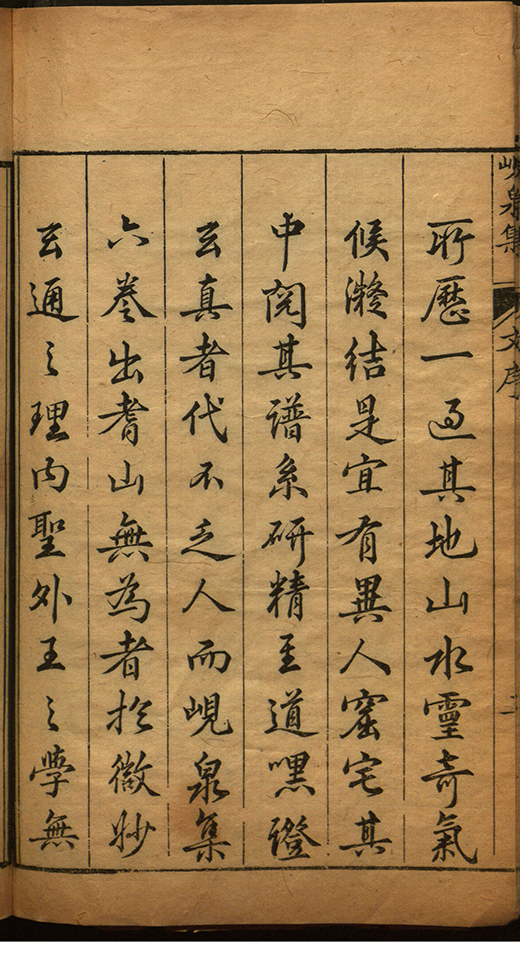 峴泉集
文序
二
所歷一過其地山水靈奇氣
候凝結是宜有異人窟宅其
中閱其譜系研精至道嘿證
玄真者代不乏人而峴泉集
六卷出耆山無為者於微妙
玄通之理内聖外王之學無